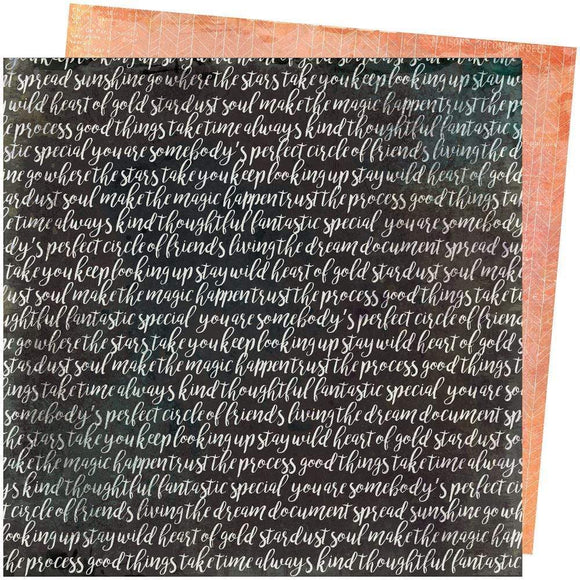 MAISONS RECOMMANDEES
spread sunshine go where the stars take you keep looking up stay w
wild heart of gold stardust soul make the magic happen trust the p
e process good things take time always kind thoughtful fantastic
stic special you are somebody's perfect circle of friends living the
ine go where the stars take you keep looking up stay wild heart of gold
ardust soul make the magic happen trust the process good things
e time always kind thoughtful fantastic special you are somebody
dy's perfect circle of friends living the dream document spread sun
take you keep looking up stay wild heart of gold stardust soul make
dust soul make the magic happen trust the process good things take
ughtful fantastic special you are somebody's perfect circle of friend
e go where the stars take you keep looking up stay wild heart of gold s
stardust soul make the magic happen trust the process good things
ngs take time always kind thoughtful fantastic special you are
somebody's perfect circle of friends living the dream document sp
the stars take you keep looking up stay wild heart of gold stardust so
ake the magic happen trust the process good things take time always
ys kind thoughtful fantastic special you are somebody's perfect ci
t circle of friends living the dream document spread sunshine go wh
looking up stay wild heart of gold stardust soul make the magic hap
he process good things take time always kind thoughtful fantastic